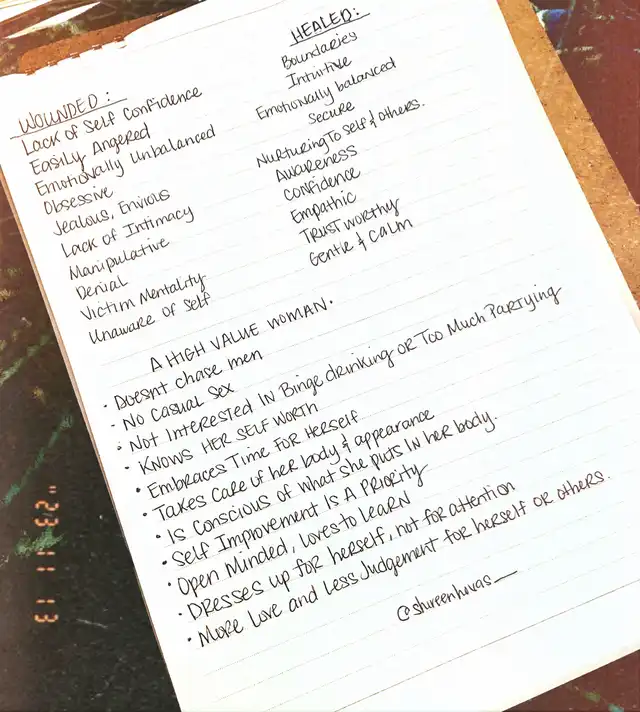 WOUNDED:
Lack of Self Confidence
Easily Angered
Emotionally Unbalanced
Obsessive
Jealous, Envious
Lack of Intimacy
Manipulative
Denial
Victim Mentality
Unaware of Self
HEALED:
Boundaries
Intuitive
Emotionally balanced
Secure
Nurturing To self & others.
Awareness
Confidence
Empathic
Trustworthy
Gentle & Calm
A HIGH VALUE WOMAN.
• Doesnt chase men
• No Casual Sex
• Not Interested In Binge drinking OR Too Much Partying
• Knows Her Self Worth
• Embraces Time For Herself
• Takes Care of her body & appearance
• Is Conscious of what she puts In her body.
• Self Improvement Is A Priority
• Open Minded, Loves to Learn
• Dresses up for herself, not for attention
• More Love and Less Judgement for herself or others.